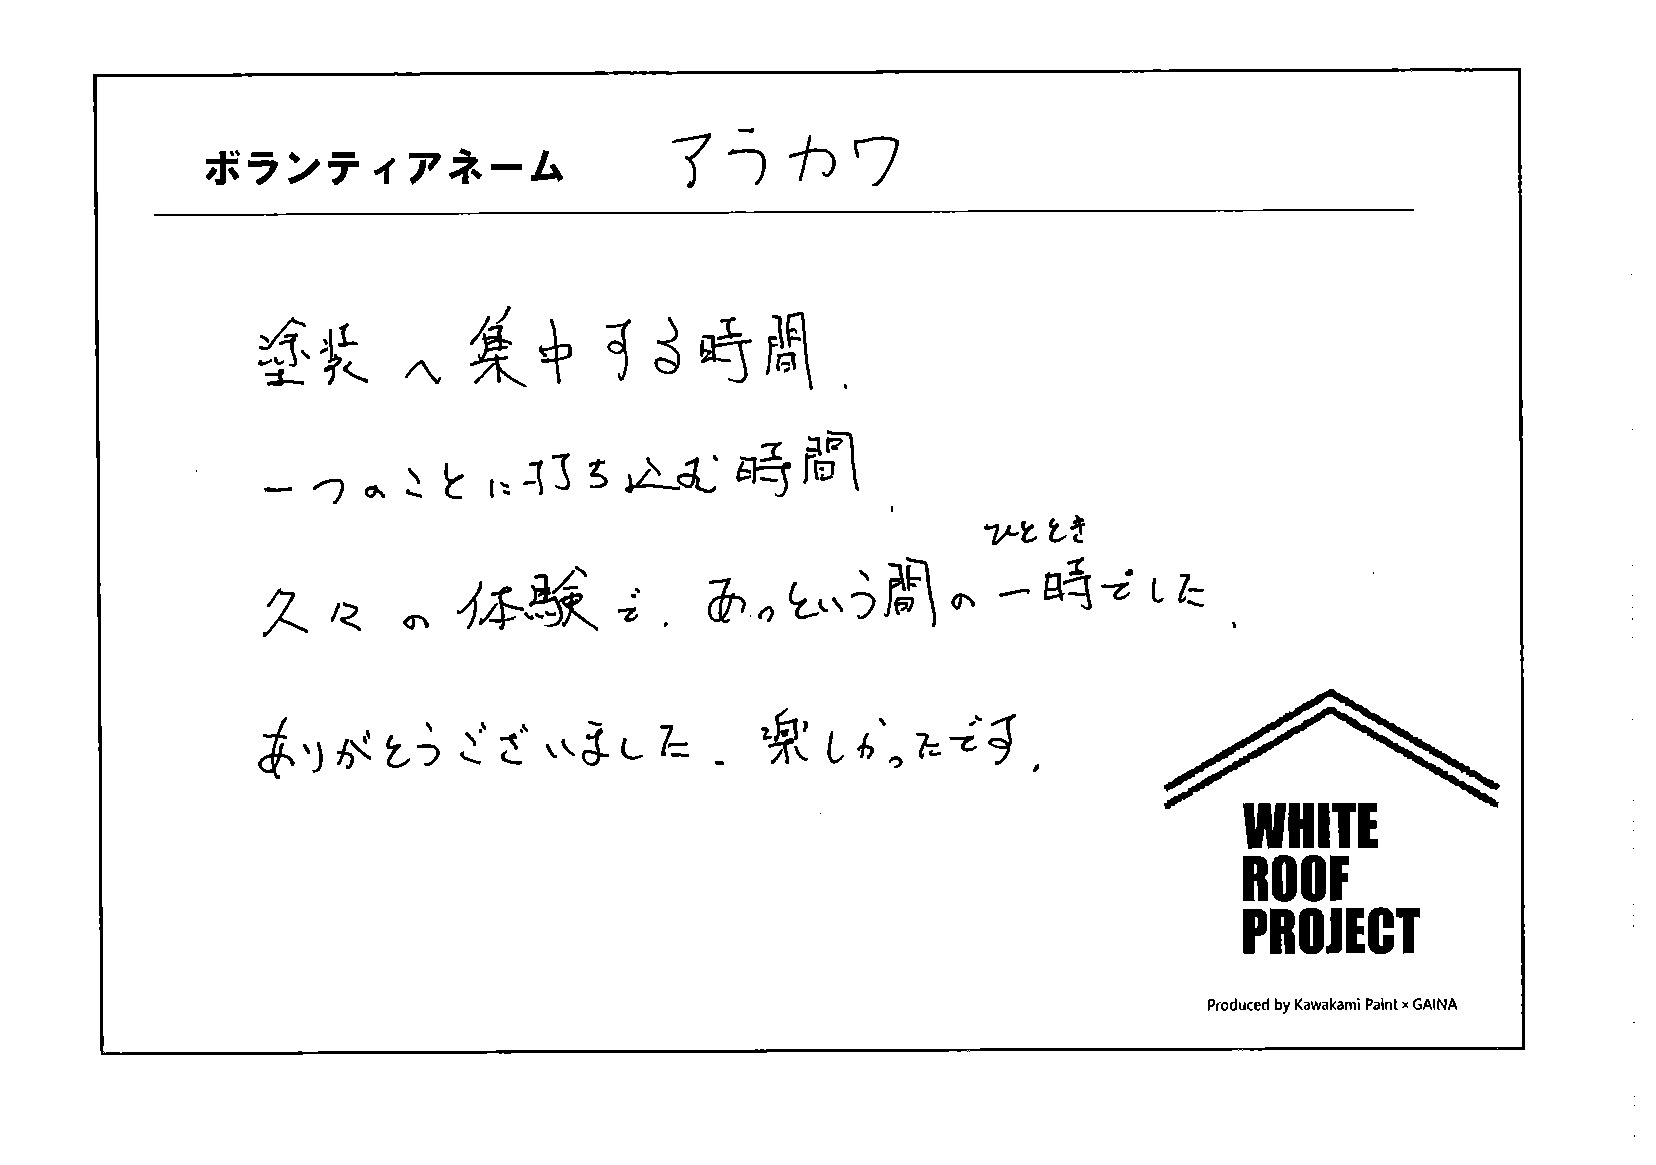 ボランティアネーム アラカワ
塗装へ集中する時間.
一つのことに打ち込む時間.
ひととき
久々の体験で. あっという間の一時でした.
ありがとうございました. 楽しかったです.
WHITE
ROOF
PROJECT
Produced by Kawakami Paint × GAINA